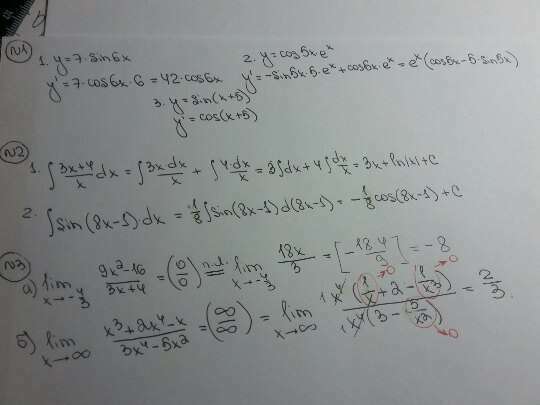 №1
1. y=7·sin6x
y'=7·cos6x·6=42·cos6x
2. y=cos5x·eˣ
y'=-sin5x·5·eˣ+cos5x·eˣ=eˣ(cos5x-5·sin5x)
3. y=sin(x+5)
y'=cos(x+5)
№2
1. ∫ (3x+4)/x dx = ∫ 3x dx/x + ∫ 4·dx/x = 3∫dx+4∫ dx/x = 3x+ln|x|+C
2. ∫sin(8x-1)dx = 1/8 ∫sin(8x-1)d(8x-1) = -1/8 cos(8x-1)+C
№3
а) lim x→-4/3 (9x²-16)/(3x+4) = (0/0) = lim x→-4/3 18x/3 = [-18·4/9] = -8
б) lim x→∞ (x³+2x⁴-x)/(3x⁴-5x²) = (∞/∞) = lim x→∞ x⁴(1/x+2-1/x³)/x⁴(3-5/x²) = 2/3.